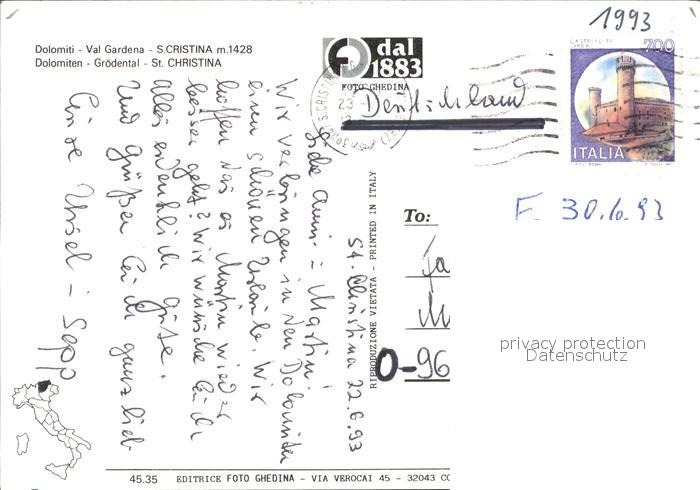 1993
Dolomiti - Val Gardena - S.CRISTINA m.1428
Dolomiten - Grödental - St. CHRISTINA
dal
1883
FOTO GHEDINA
Deutschland
700
ITALIA
F 30.6.93
To:
Ja
M
D-96
privacy protection
Datenschutz
RIPRODUZIONE VIETATA - PRINTED IN ITALY
St. Christina 22.6.93
Liebe Anni - Martin!
Wir verbringen in den Dolomiten
einen schönen Urlaub. Wir
hoffen das es Martin wieder
besser geht? Wir wünschen Euch
alles erdenklich gute.
Und grüßen Euch ganz lieb
Eure Ursel - Sepp
45.35 EDITRICE FOTO GHEDINA - VIA VEROCAI 45 - 32043 CO